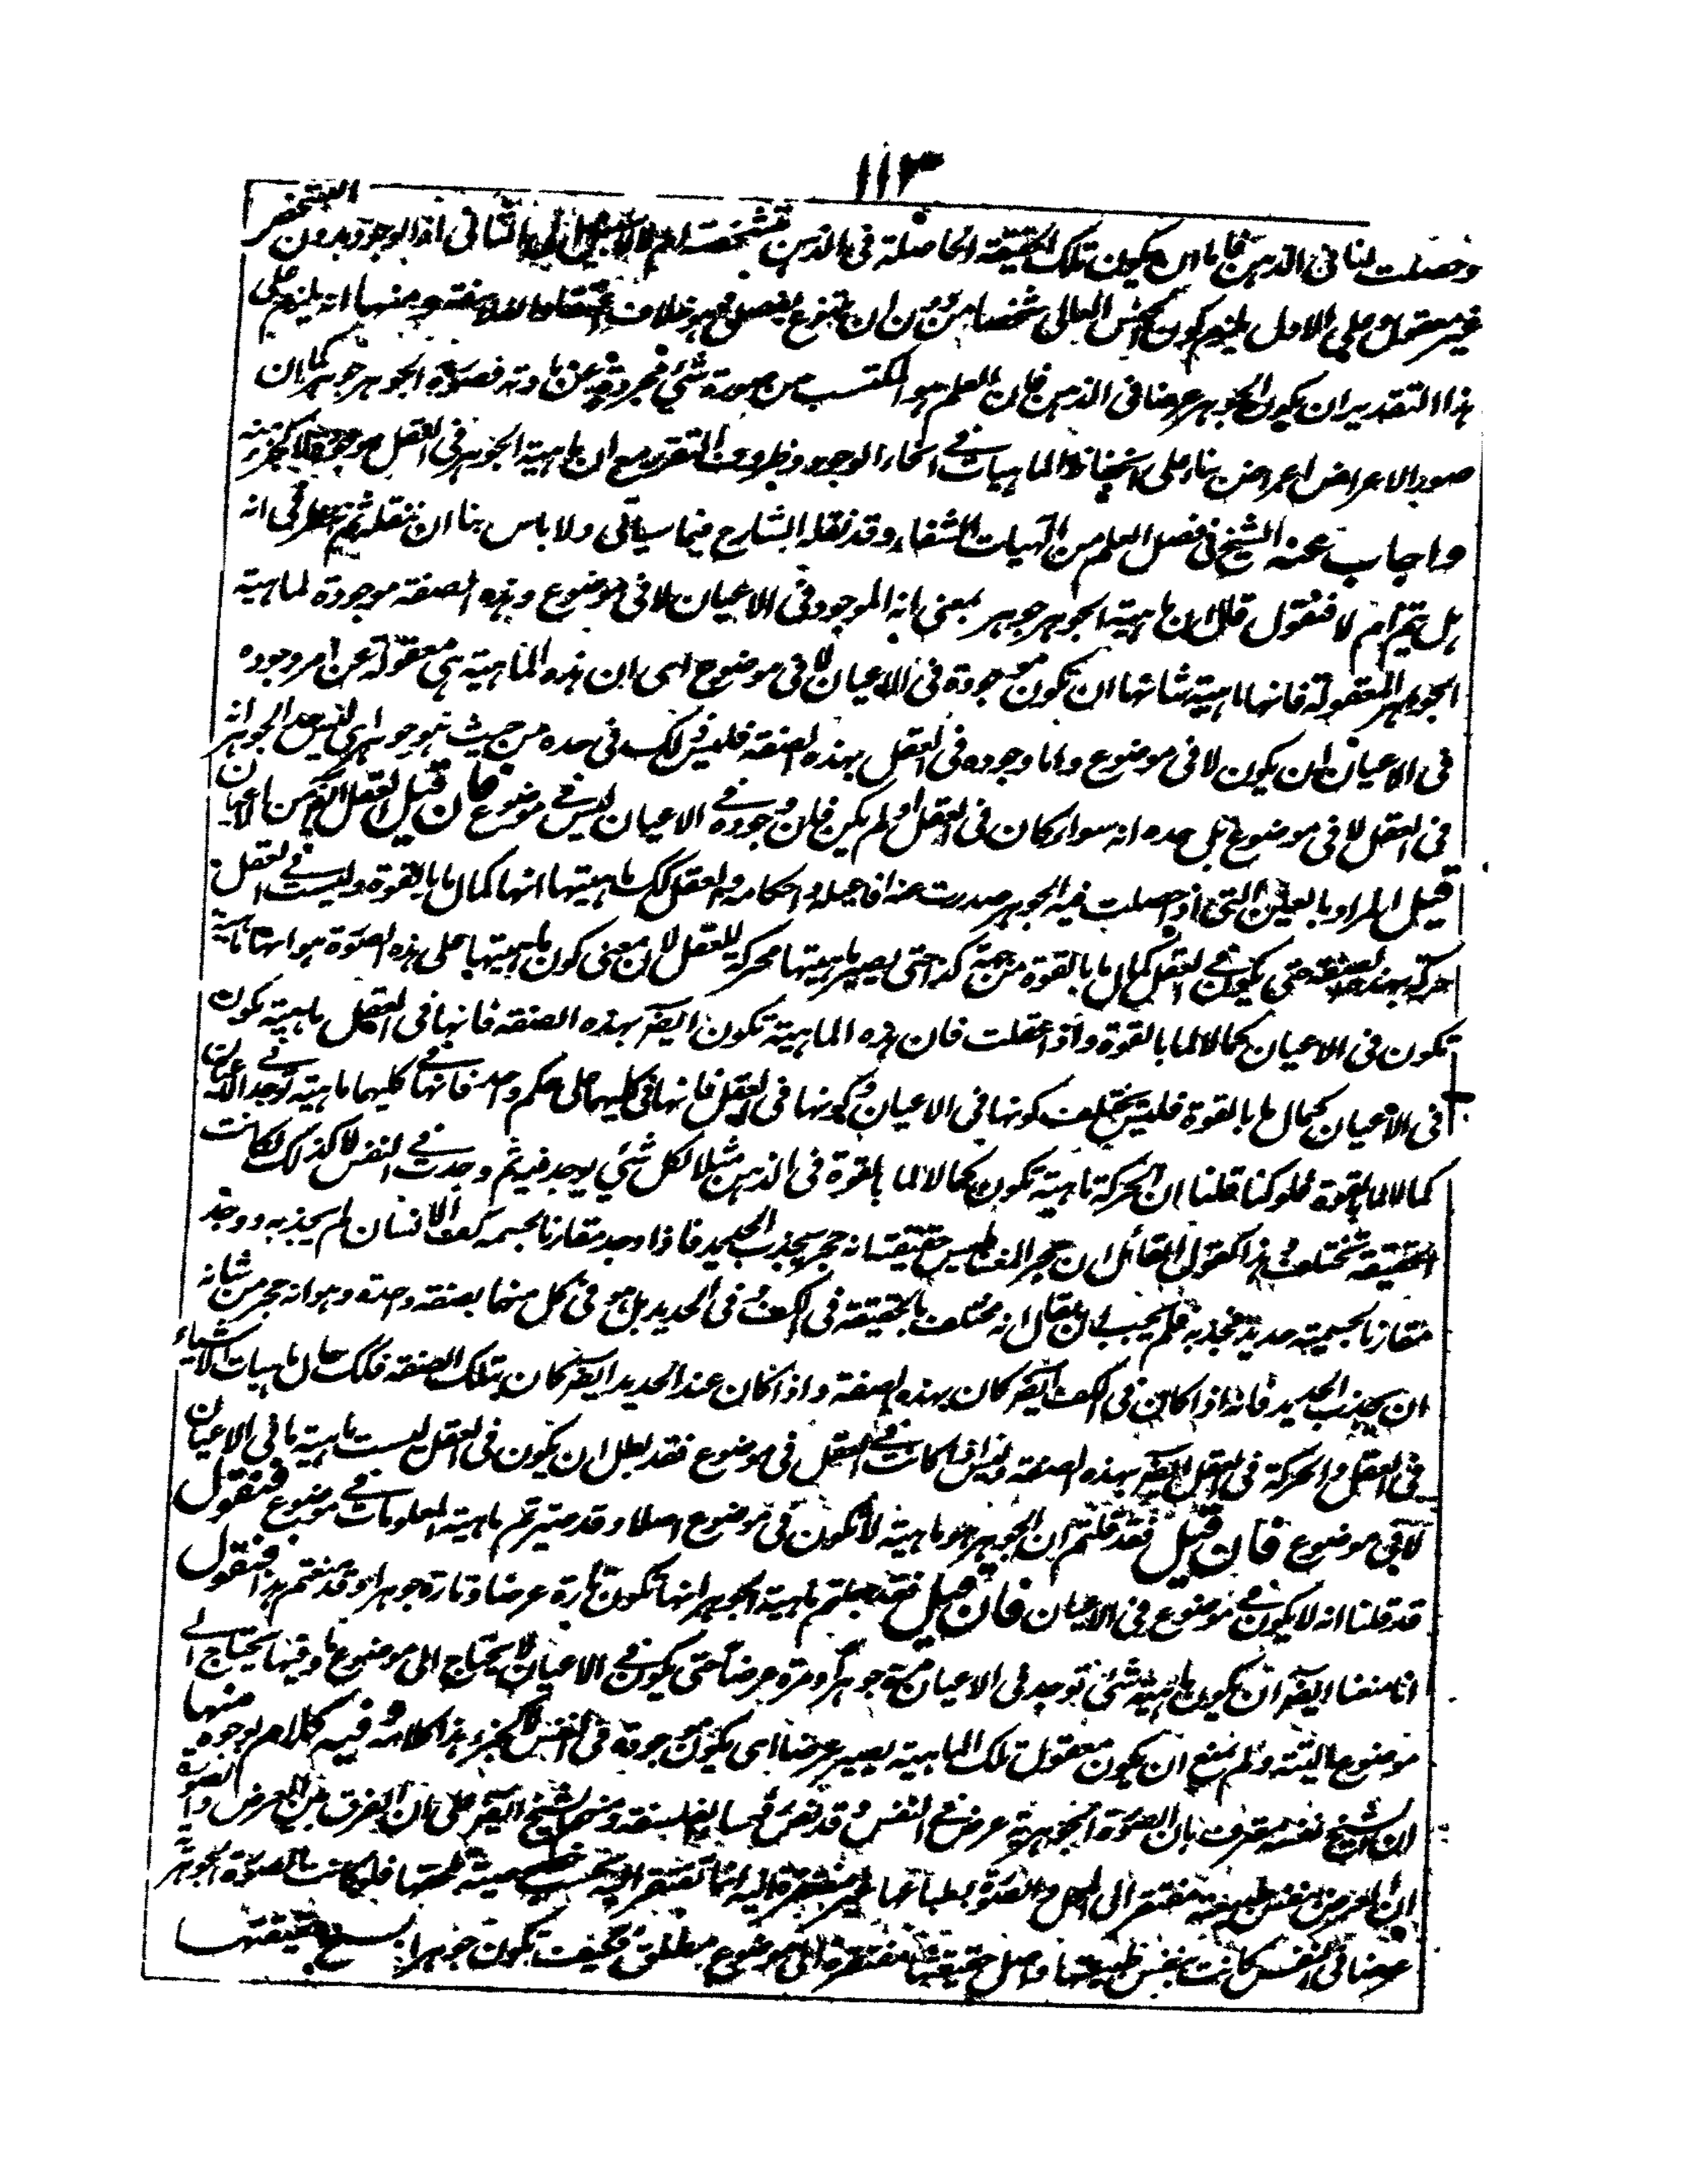 ١١٣
وحصلت لنا فى الذهن فاما ان يكون تلك الحقيقة الحاصلة فى الذهن تشخصت ام لا لا سبيل الى الثانى اذ الوجود بدون التشخص
غير معقول وعلى الاول يلزم كون الجنس العالى شخصا من دون ان يتنوع بفصل وهو خلاف ومنها انه يلزم على
هذا التقدير ان يكون الجوهر عرضا فى الذهن فان العلم هو المكتسب من صورة شئ مجردة عن مادته فصورة الجوهر جوهر كما ان
صور الاعراض اعراض بناء على انحفاظ الماهيات فے انحاء الوجود وظروف التقرر مع ان ماهية الجوهر فى العقل موجودة
واجاب عنه الشيخ فى فصل العلم من الهيات الشفاء وقد نقله الشارح فيما سياتى ولا باس بنا ان ننقله ثم ننظر فى انه
هل يتم ام لا فنقول قال ان ماهية الجوهر جوهر بمعنى انه الموجود فى الاعيان لا فى موضوع وهذه الصفة موجودة لماهية
الجوهر المعقولة فانها ماهية شانها ان تكون موجودة فى الاعيان لا فى موضوع اى ان هذه الماهية هى معقولة عن امر وجوده
فى الاعيان ان يكون لا فى موضوع واما وجوده فى العقل بهذه الصفة فليس ذلك فى حده من حيث هو جوهر اى ليس حد الجوهر انه
فى العقل لا فى موضوع بل حده انه سواء كان فى العقل او لم يكن فان وجوده فے الاعيان ليس فے موضوع فان قيل العقل ايضا من الاعيان
قيل المراد بالعين التى اذا حصلت فيه الجوهر صدرت عنه افاعيله واحكامه والعقل كك ماهيتها انها كمال ما بالقوة وليست فے العقل
حركة بهذه الصفة حتى يكون فے العقل كمال ما بالقوة من جهة كذا حتى يصير ماهيتها محركة للعقل لان معنى كون ماهيتها على هذه الصورة هو انها ماهية
تكون فى الاعيان كمالا لما بالقوة واذا عقلت فان هذه الماهية تكون ايضا بهذه الصفة فانها فى العقل ماهية تكون
فى الاعيان كمال ما بالقوة فليس يختلف كونها فى الاعيان وكونها فى العقل فانها فى كليهما على حكم واحد فانها فے كليهما ماهية توجد فے الاعيان
كمالا لما بالقوة فلو كنا قلنا ان الحركة ماهية تكون كمالا لما بالقوة فى الذهن مثلا لكل شئي يوجد فيه ثم وجدت فے النفس لا كذلك لكانت
الحقيقة تختلف وهذا كقول القائل ان حجر المغناطيس حقيقته انه حجر يجذب الحديد فاذا وجد مقارنا لجسمه كف الانسان لم يجذبه ووجد
مقارنا لجسمية حديدة فجذبه فلم يجب ان يقال انه مختلف بالحقيقة فى الكف وفى الحديد بل هو فى كل منهما بصفة واحدة وهو انه حجر من شانه
ان يجذب الحديد فانه اذا كان فى الكف ايضا كان بهذه الصفة واذا كان عند الحديد ايضا كان بتلك الصفة فكك حال ماهيات الاشياء
فى العقل والحركة فى العقل ايضا بهذه الصفة وليس اذا كانت فے العقل فى موضوع فقد بطل ان يكون فى العقل ليست ماهية ما فى الاعيان
لا فى موضوع فان قيل فقد قلتم ان الجوهر هو ماهية لا تكون فى موضوع اصلا وقد صيرتم ماهية المعلومات فے موضوع فنقول
قد قلنا انه لا يكون فے موضوع فى الاعيان فان قيل فقد جعلتم ماهية الجوهر انها تكون تارة عرضا وتارة جوهرا وقد منعتم هذا فنقول
انا منعنا ايضا ان يكون ماهية شئ توجد فى الاعيان مرة جوهرا ومرة عرضا حتى يكون فے الاعيان لا يحتاج الى موضوع ما وفيها يحتاج الى
موضوع ما البتة ولم نمنع ان يكون معقول تلك الماهية يصير عرضا اى يكون موجودة فى النفس لا كجزء هذا كلامه وفيه كلام بوجوه منها
ان الشيخ نفسه معترف بان الصورة الجوهرية عرض فے النفس وقد نص الفلاسفة ومنهم الشيخ ايضا على ان الفرق بين العرض والصورة
ان العرض بنفس طبيعته مفتقر الى المحل والصورة بطباعها غير مفتقرة اليه انما تفتقر اليه فلو كانت الصورة الجوهرية
عرضا فى النفس كانت بنفس طبيعتها واصل حقيقتها مفتقرة الى موضوع مطلق فكيف تكون جوهرا بسنخ حقيقتها